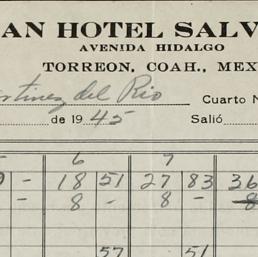 AN HOTEL SALV
AVENIDA HIDALGO
TORREON, COAH., MEX
rtinez del Rio Cuarto N
de 1945 Salió
6 7
9 - 18 51 27 83 36
- 8 - 8 - 8
57 51